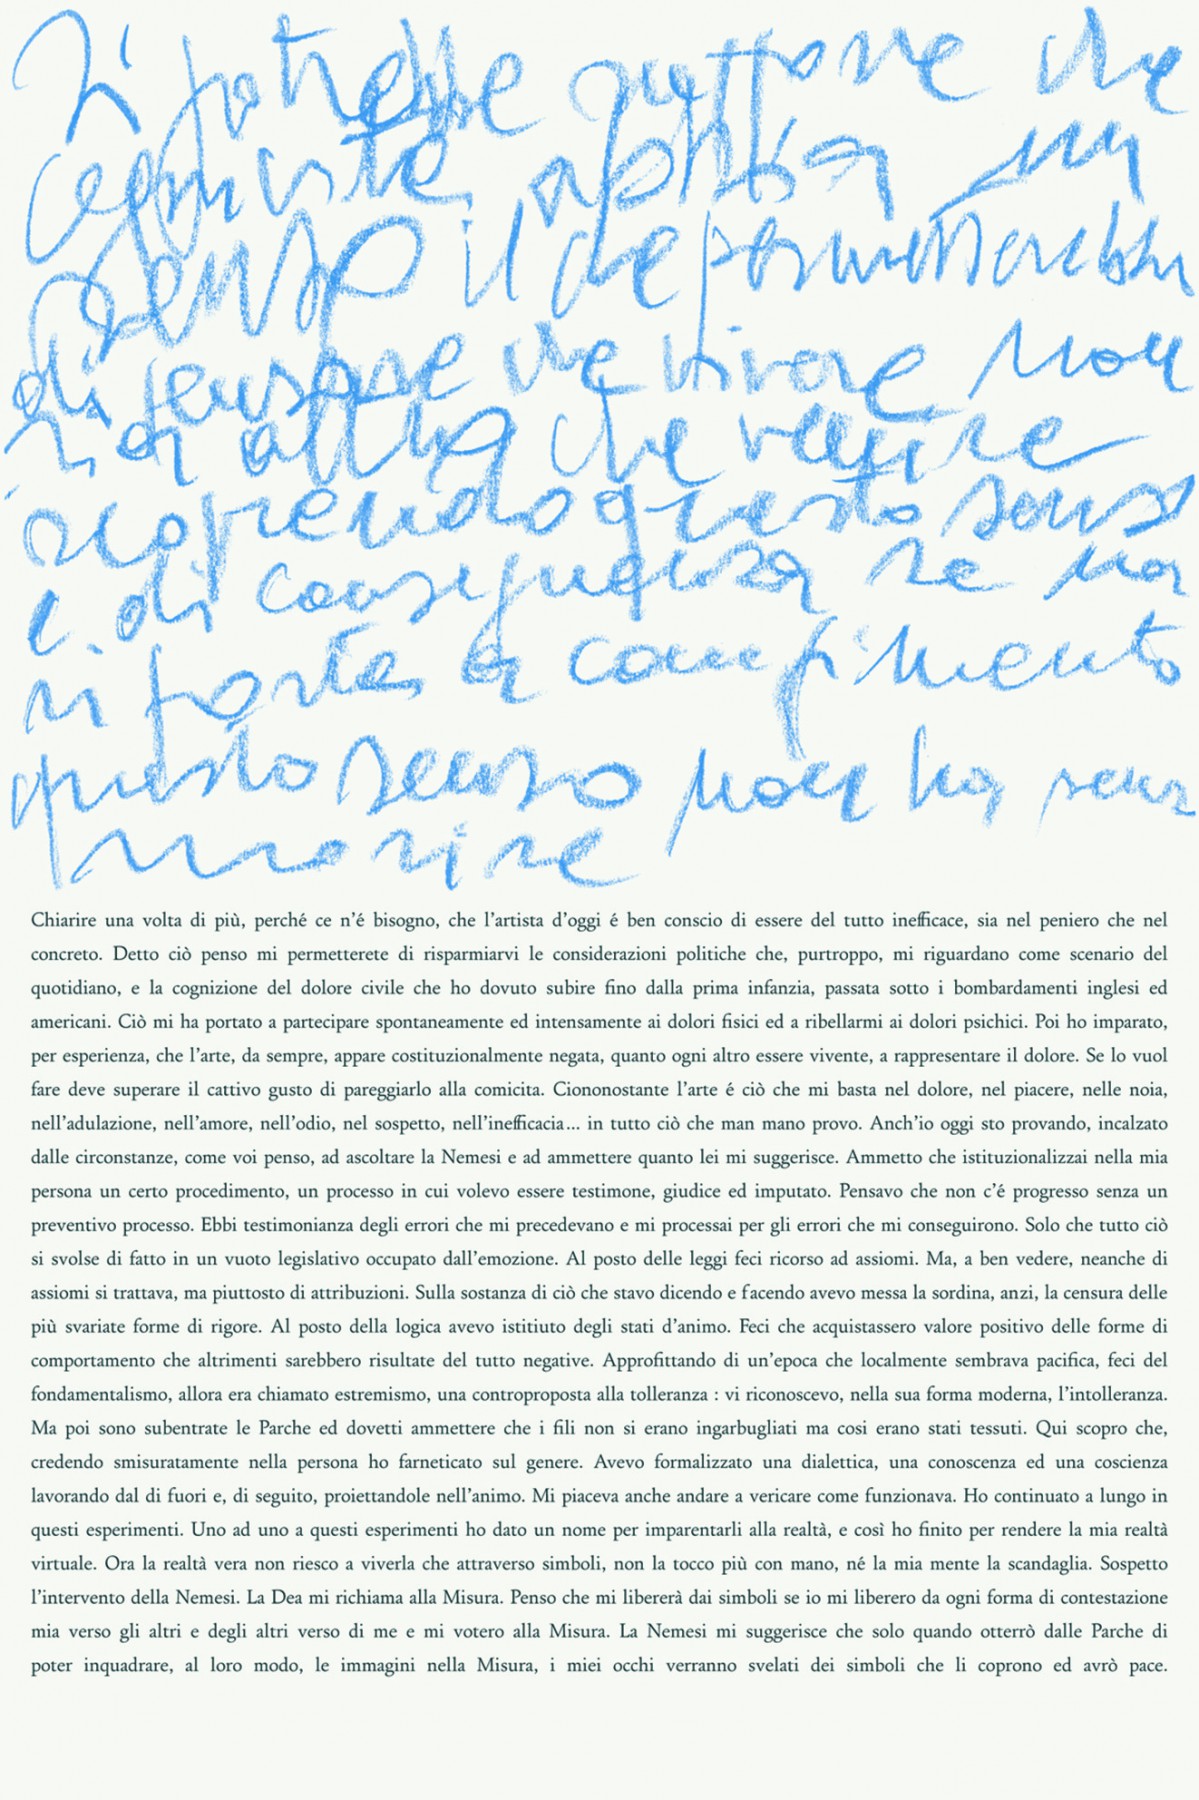 Si potrebbe supporre che
esista un
senso il che permetterebbe
di pensare che vivere non
sia altro che venire
scoprendo questo senso
e di conseguenza se non
si porta a compimento
questo senso non ha senso
morire
Chiarire una volta di più, perché ce n’é bisogno, che l’artista d’oggi é ben conscio di essere del tutto inefficace, sia nel peniero che nel
concreto. Detto ciò penso mi permetterete di risparmiarvi le considerazioni politiche che, purtroppo, mi riguardano come scenario del
quotidiano, e la cognizione del dolore civile che ho dovuto subire fino dalla prima infanzia, passata sotto i bombardamenti inglesi ed
americani. Ciò mi ha portato a partecipare spontaneamente ed intensamente ai dolori fisici ed a ribellarmi ai dolori psichici. Poi ho imparato,
per esperienza, che l’arte, da sempre, appare costituzionalmente negata, quanto ogni altro essere vivente, a rappresentare il dolore. Se lo vuol
fare deve superare il cattivo gusto di pareggiarlo alla comicita. Ciononostante l’arte é ciò che mi basta nel dolore, nel piacere, nelle noia,
nell’adulazione, nell’amore, nell’odio, nel sospetto, nell’inefficacia... in tutto ciò che man mano provo. Anch’io oggi sto provando, incalzato
dalle circonstanze, come voi penso, ad ascoltare la Nemesi e ad ammettere quanto lei mi suggerisce. Ammetto che istituzionalizzai nella mia
persona un certo procedimento, un processo in cui volevo essere testimone, giudice ed imputato. Pensavo che non c’é progresso senza un
preventivo processo. Ebbi testimonianza degli errori che mi precedevano e mi processai per gli errori che mi conseguirono. Solo che tutto ciò
si svolse di fatto in un vuoto legislativo occupato dall’emozione. Al posto delle leggi feci ricorso ad assiomi. Ma, a ben vedere, neanche di
assiomi si trattava, ma piuttosto di attribuzioni. Sulla sostanza di ciò che stavo dicendo e facendo avevo messa la sordina, anzi, la censura delle
più svariate forme di rigore. Al posto della logica avevo istitiuto degli stati d’animo. Feci che acquistassero valore positivo delle forme di
comportamento che altrimenti sarebbero risultate del tutto negative. Approfittando di un’epoca che localmente sembrava pacifica, feci del
fondamentalismo, allora era chiamato estremismo, una controproposta alla tolleranza : vi riconoscevo, nella sua forma moderna, l’intolleranza.
Ma poi sono subentrate le Parche ed dovetti ammettere che i fili non si erano ingarbugliati ma cosi erano stati tessuti. Qui scopro che,
credendo smisuratamente nella persona ho farneticato sul genere. Avevo formalizzato una dialettica, una conoscenza ed una coscienza
lavorando dal di fuori e, di seguito, proiettandole nell’animo. Mi piaceva anche andare a vericare come funzionava. Ho continuato a lungo in
questi esperimenti. Uno ad uno a questi esperimenti ho dato un nome per imparentarli alla realtà, e così ho finito per rendere la mia realtà
virtuale. Ora la realtà vera non riesco a viverla che attraverso simboli, non la tocco più con mano, né la mia mente la scandaglia. Sospetto
l’intervento della Nemesi. La Dea mi richiama alla Misura. Penso che mi libererà dai simboli se io mi liberero da ogni forma di contestazione
mia verso gli altri e degli altri verso di me e mi votero alla Misura. La Nemesi mi suggerisce che solo quando otterrò dalle Parche di
poter inquadrare, al loro modo, le immagini nella Misura, i miei occhi verranno svelati dei simboli che li coprono ed avrò pace.